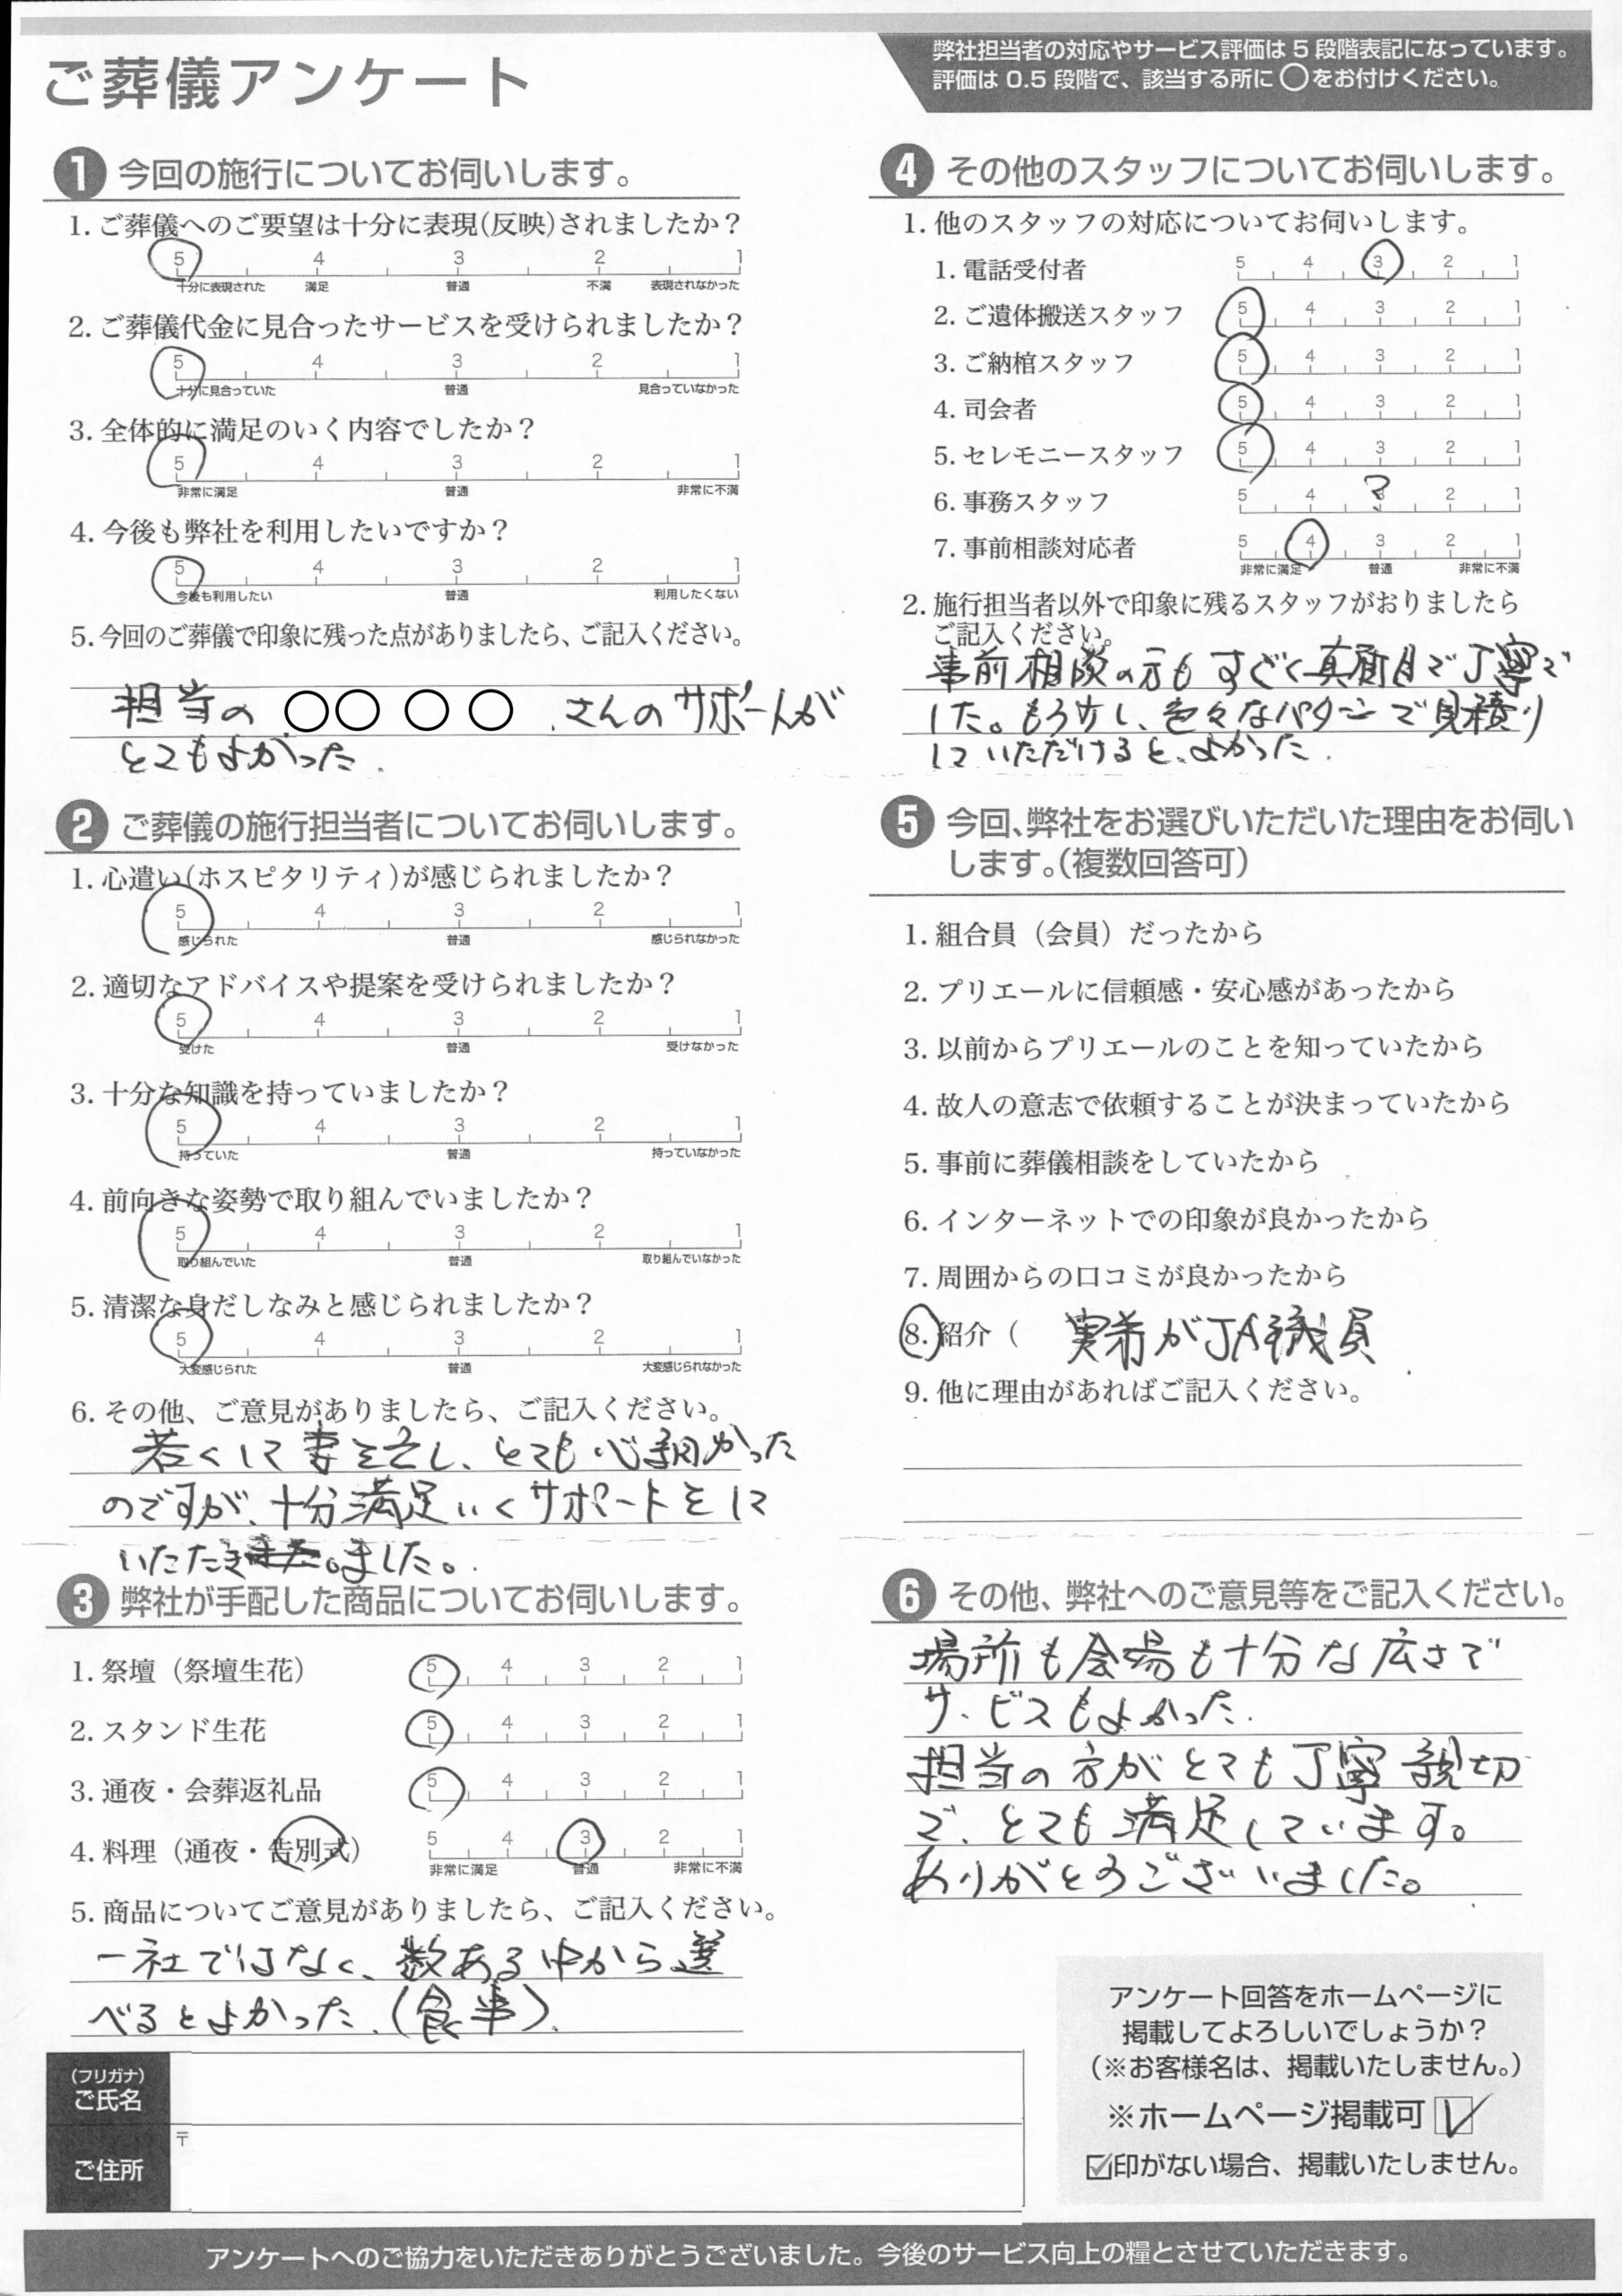 ご葬儀アンケート
弊社担当者の対応やサービス評価は5段階表記になっています。
評価は0.5段階で、該当する所に○をお付けください。
1 今回の施行についてお伺いします。
1. ご葬儀へのご要望は十分に表現(反映)されましたか？
5 4 3 2 1
十分に表現された 満足 普通 不満 表現されなかった
2. ご葬儀代金に見合ったサービスを受けられましたか？
5 4 3 2 1
十分に見合っていた 普通 見合っていなかった
3. 全体的に満足のいく内容でしたか？
5 4 3 2 1
非常に満足 普通 非常に不満
4. 今後も弊社を利用したいですか？
5 4 3 2 1
今後も利用したい 普通 利用したくない
5. 今回のご葬儀で印象に残った点がありましたら、ご記入ください。
担当の ○○○○ さんのサポートが
とてもよかった.
2 ご葬儀の施行担当者についてお伺いします。
1. 心遣い(ホスピタリティ)が感じられましたか？
5 4 3 2 1
感じられた 普通 感じられなかった
2. 適切なアドバイスや提案を受けられましたか？
5 4 3 2 1
受けた 普通 受けなかった
3. 十分な知識を持っていましたか？
5 4 3 2 1
持っていた 普通 持っていなかった
4. 前向きな姿勢で取り組んでいましたか？
5 4 3 2 1
取り組んでいた 普通 取り組んでいなかった
5. 清潔な身だしなみと感じられましたか？
5 4 3 2 1
大変感じられた 普通 大変感じられなかった
6. その他、ご意見がありましたら、ご記入ください。
若くして妻を亡くし、とても心細かった
のですが、十分満足いくサポートをして
いただきました。
3 弊社が手配した商品についてお伺いします。
1. 祭壇（祭壇生花） 5 4 3 2 1
2. スタンド生花 5 4 3 2 1
3. 通夜・会葬返礼品 5 4 3 2 1
4. 料理（通夜・告別式） 5 4 3 2 1
非常に満足 普通 非常に不満
5. 商品についてご意見がありましたら、ご記入ください。
一社ではなく、数ある中から選
べるとよかった.（食事）.
(フリガナ)
ご氏名
〒
ご住所
4 その他のスタッフについてお伺いします。
1. 他のスタッフの対応についてお伺いします。
1. 電話受付者 5 4 3 2 1
2. ご遺体搬送スタッフ 5 4 3 2 1
3. ご納棺スタッフ 5 4 3 2 1
4. 司会者 5 4 3 2 1
5. セレモニースタッフ 5 4 3 2 1
6. 事務スタッフ 5 4 3 2 1 ?
7. 事前相談対応者 5 4 3 2 1
非常に満足 普通 非常に不満
2. 施行担当者以外で印象に残るスタッフがおりましたら
ご記入ください。
事前相談の方もすごく真面目で丁寧で
した。もう少し、色々なパターンで見積り
していただけると、よかった.
5 今回、弊社をお選びいただいた理由をお伺い
します。（複数回答可）
1. 組合員（会員）だったから
2. プリエールに信頼感・安心感があったから
3. 以前からプリエールのことを知っていたから
4. 故人の意志で依頼することが決まっていたから
5. 事前に葬儀相談をしていたから
6. インターネットでの印象が良かったから
7. 周囲からの口コミが良かったから
8. 紹介（ 実弟がJA職員
9. 他に理由があればご記入ください。
6 その他、弊社へのご意見等をご記入ください。
場所も会場も十分な広さで
サービスもよかった.
担当の方がとても丁寧 親切
で、とても満足しています。
ありがとうございました。
アンケート回答をホームページに
掲載してよろしいでしょうか？
（※お客様名は、掲載いたしません。）
※ホームページ掲載可
☑印がない場合、掲載いたしません。
アンケートへのご協力をいただきありがとうございました。今後のサービス向上の糧とさせていただきます。